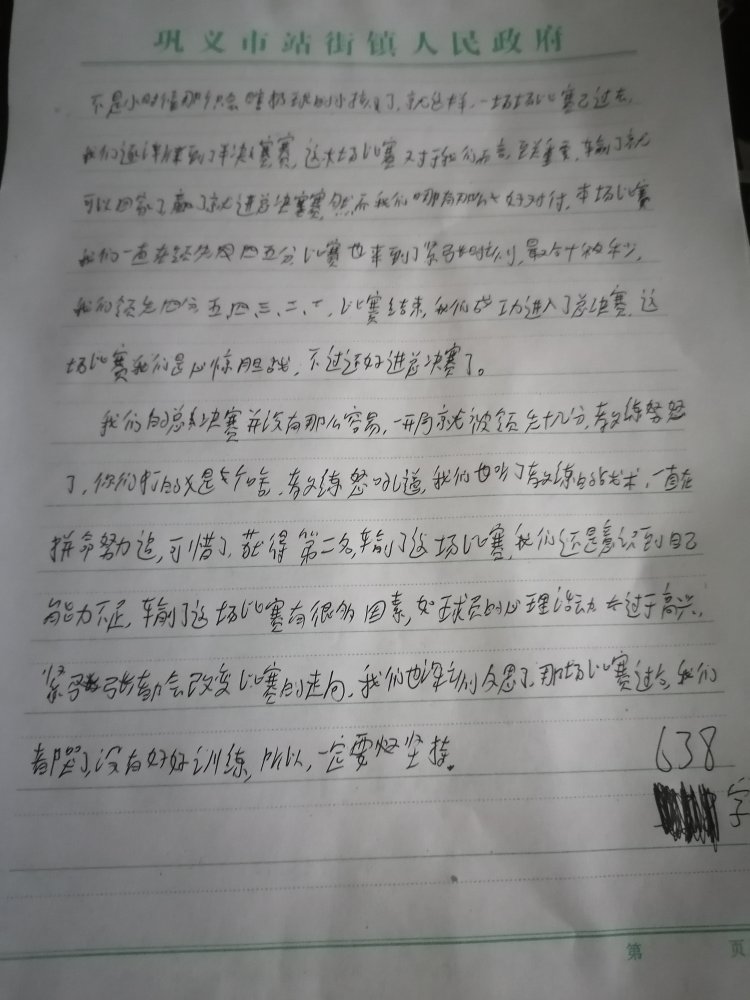 巩义市站街镇人民政府
不是小时候那个只会瞎扔球的小孩了,就这样,一场场比赛已过去,
我们逐渐来到了半决赛,这次场比赛对于我们而言,至关重要,输了就
可以回家了赢了就进总决赛,然而我们哪有那么好对付,本场比赛
我们一直在领先四五分,比赛也来到了紧张时刻,最后十秒钟,
我们领先四分五,四、三、二、一,比赛结束,我们成功进入了总决赛,这
场比赛我们是心惊胆战,不过还好进总决赛了。
我们的总决赛并没有那么容易,一开局就被领先十几分,教练努怒
了,你们打的是个啥,教练怒吼道,我们也听了教练的战术,一直在
拼命努力追,可惜了,获得第二名,输了这场比赛,我们还是意识到自己
能力不足,输了这场比赛有很多因素,如球员的心理活动太过于高兴,
紧张都会改变比赛的走向,我们也深刻反思了,那场比赛过后,我们
都哭了,没有好好训练,所以,一定要坚持。
638
字
第 页